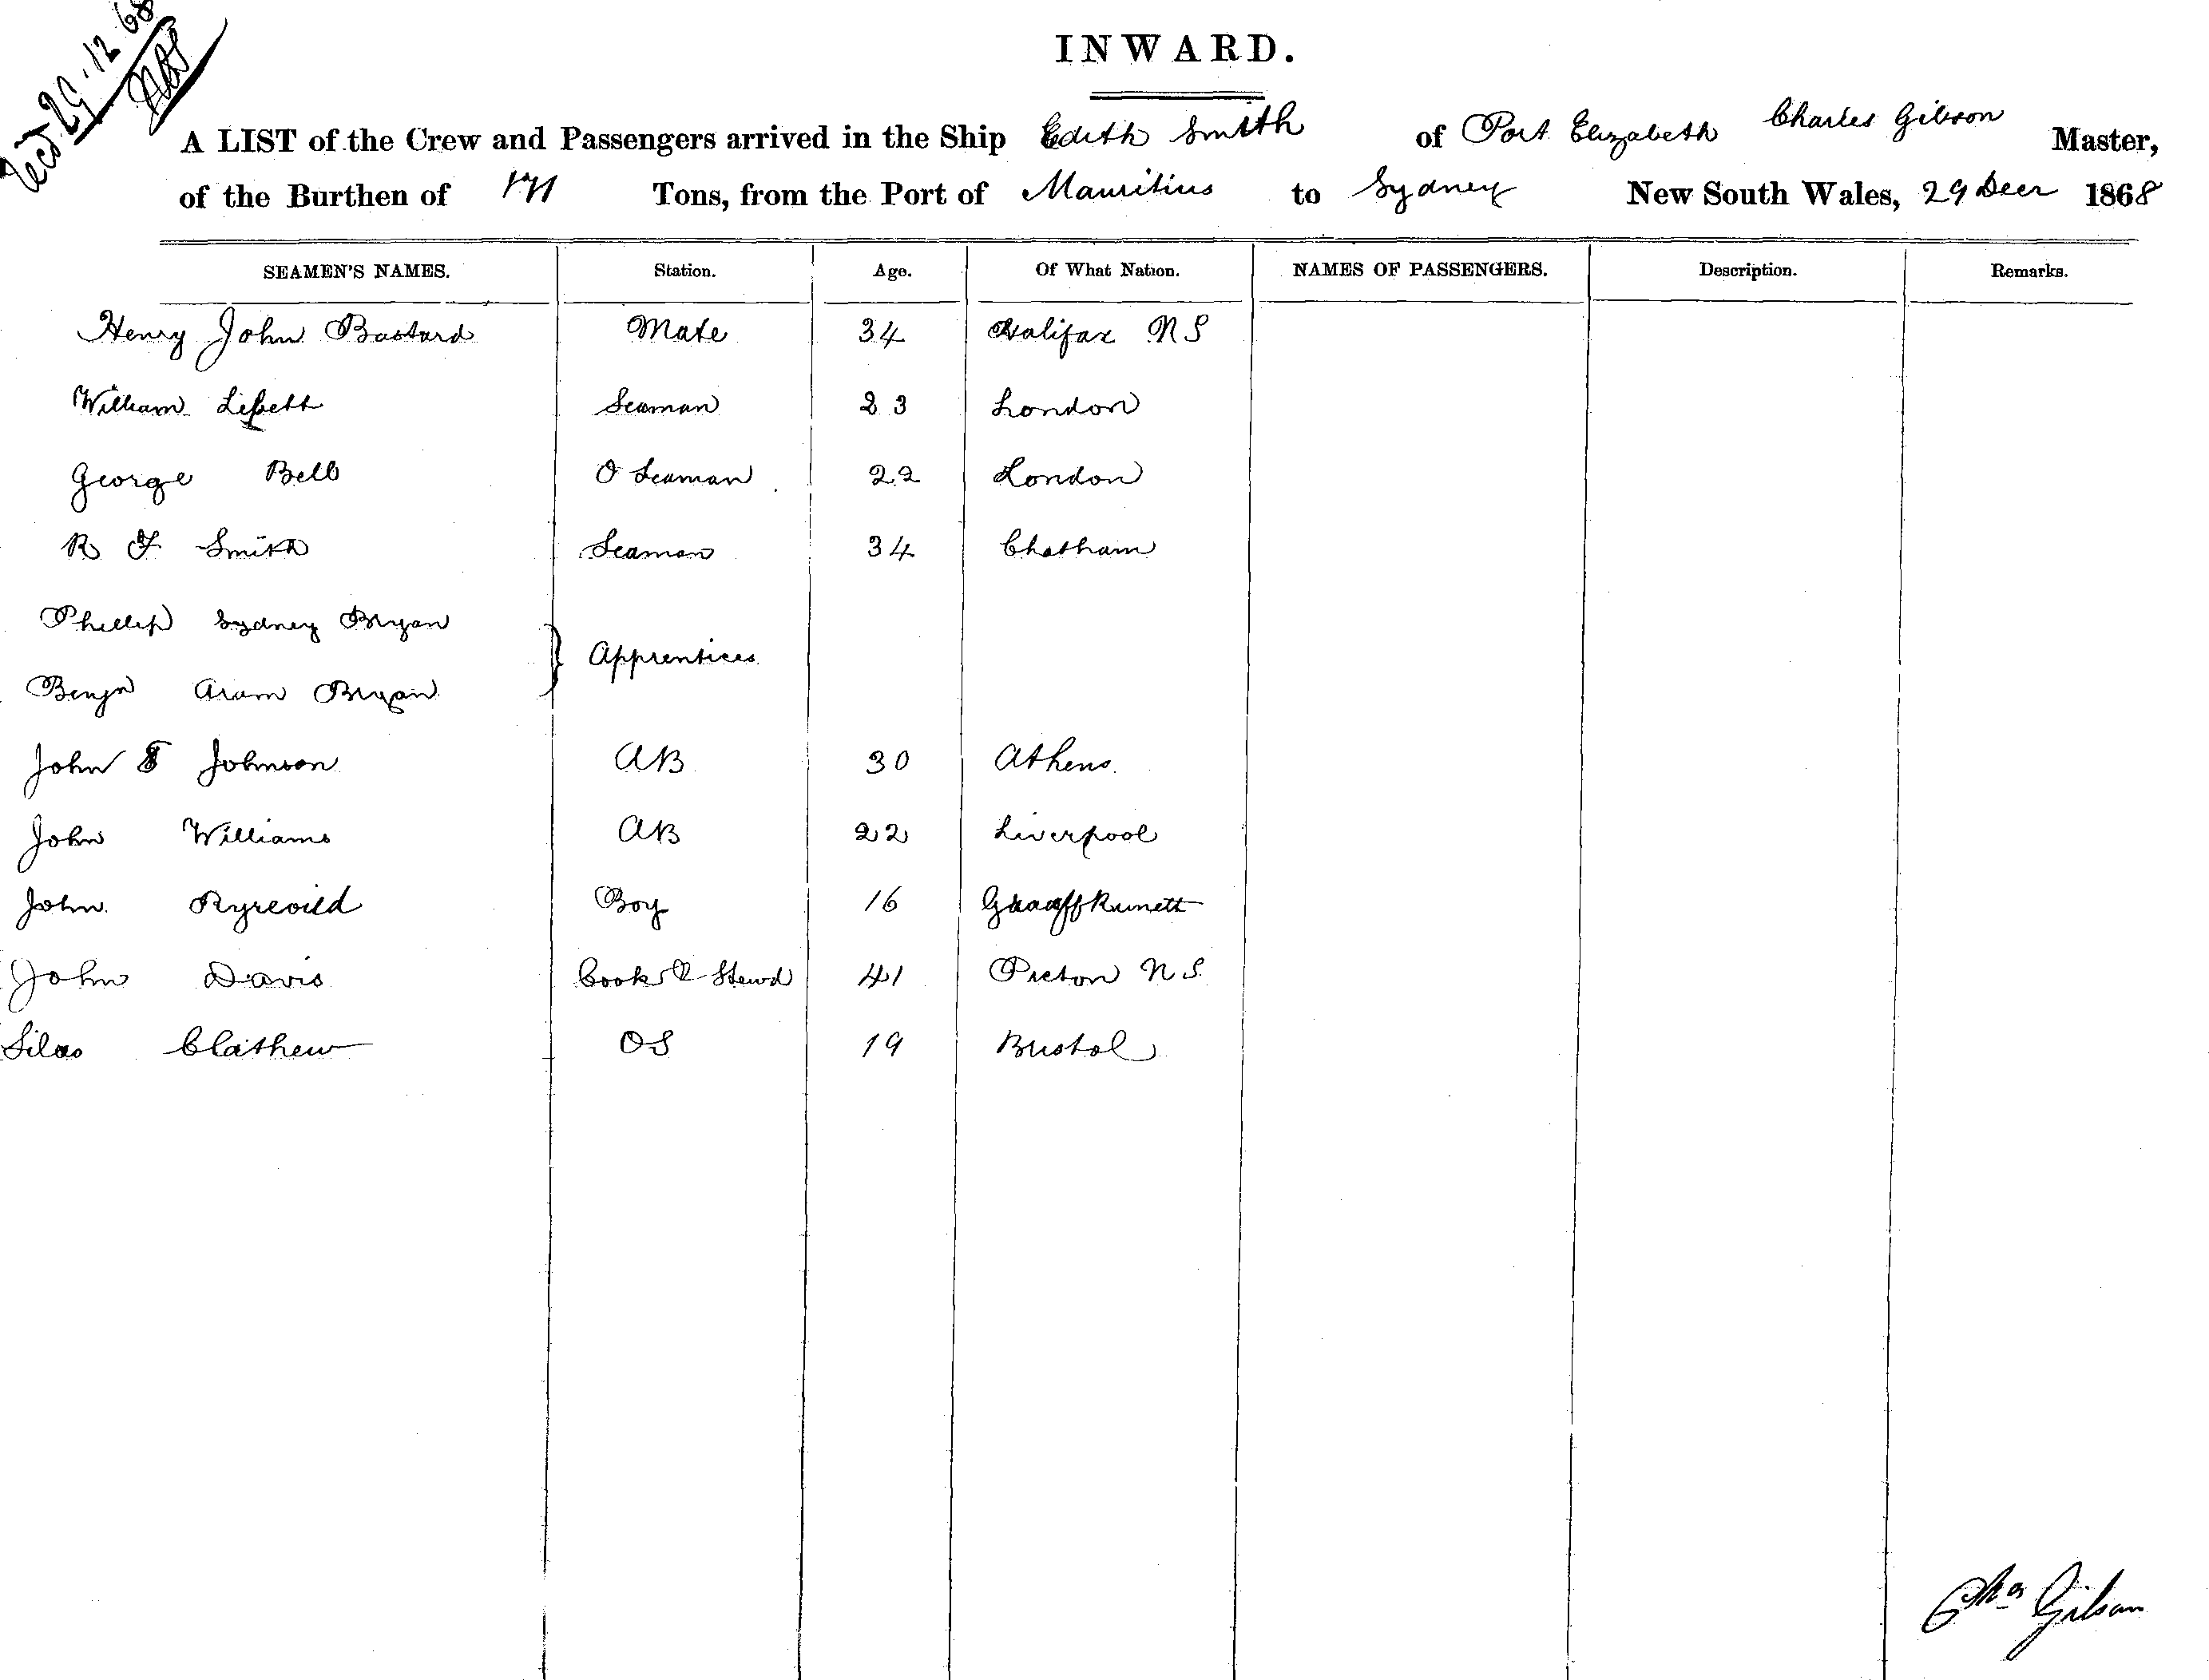 Recd 29.12.68
INWARD.
A LIST of the Crew and Passengers arrived in the Ship Edith Smith of Port Elizabeth Charles Gibson Master,
of the Burthen of 171 Tons, from the Port of Mauritius to Sydney New South Wales, 29 Decr 1868
SEAMEN'S NAMES. Station. Age. Of What Nation. NAMES OF PASSENGERS. Description. Remarks.
Henry John Bastard Mate 34 Halifax NS
William Seaman 23 London
George Bell O Seaman 22 London
R F Smith Seaman 34 Chatham
Phillip Sydney Bryan
Apprentices
Benjn Aram Bryan
John Johnson AB 30 Athens
John Williams AB 22 Liverpool
John Boy 16 Graaff Reinett
John Davis Cook & Stewd 41 Picton NS
Silas Clathew OS 19 Bristol
Chas Gibson